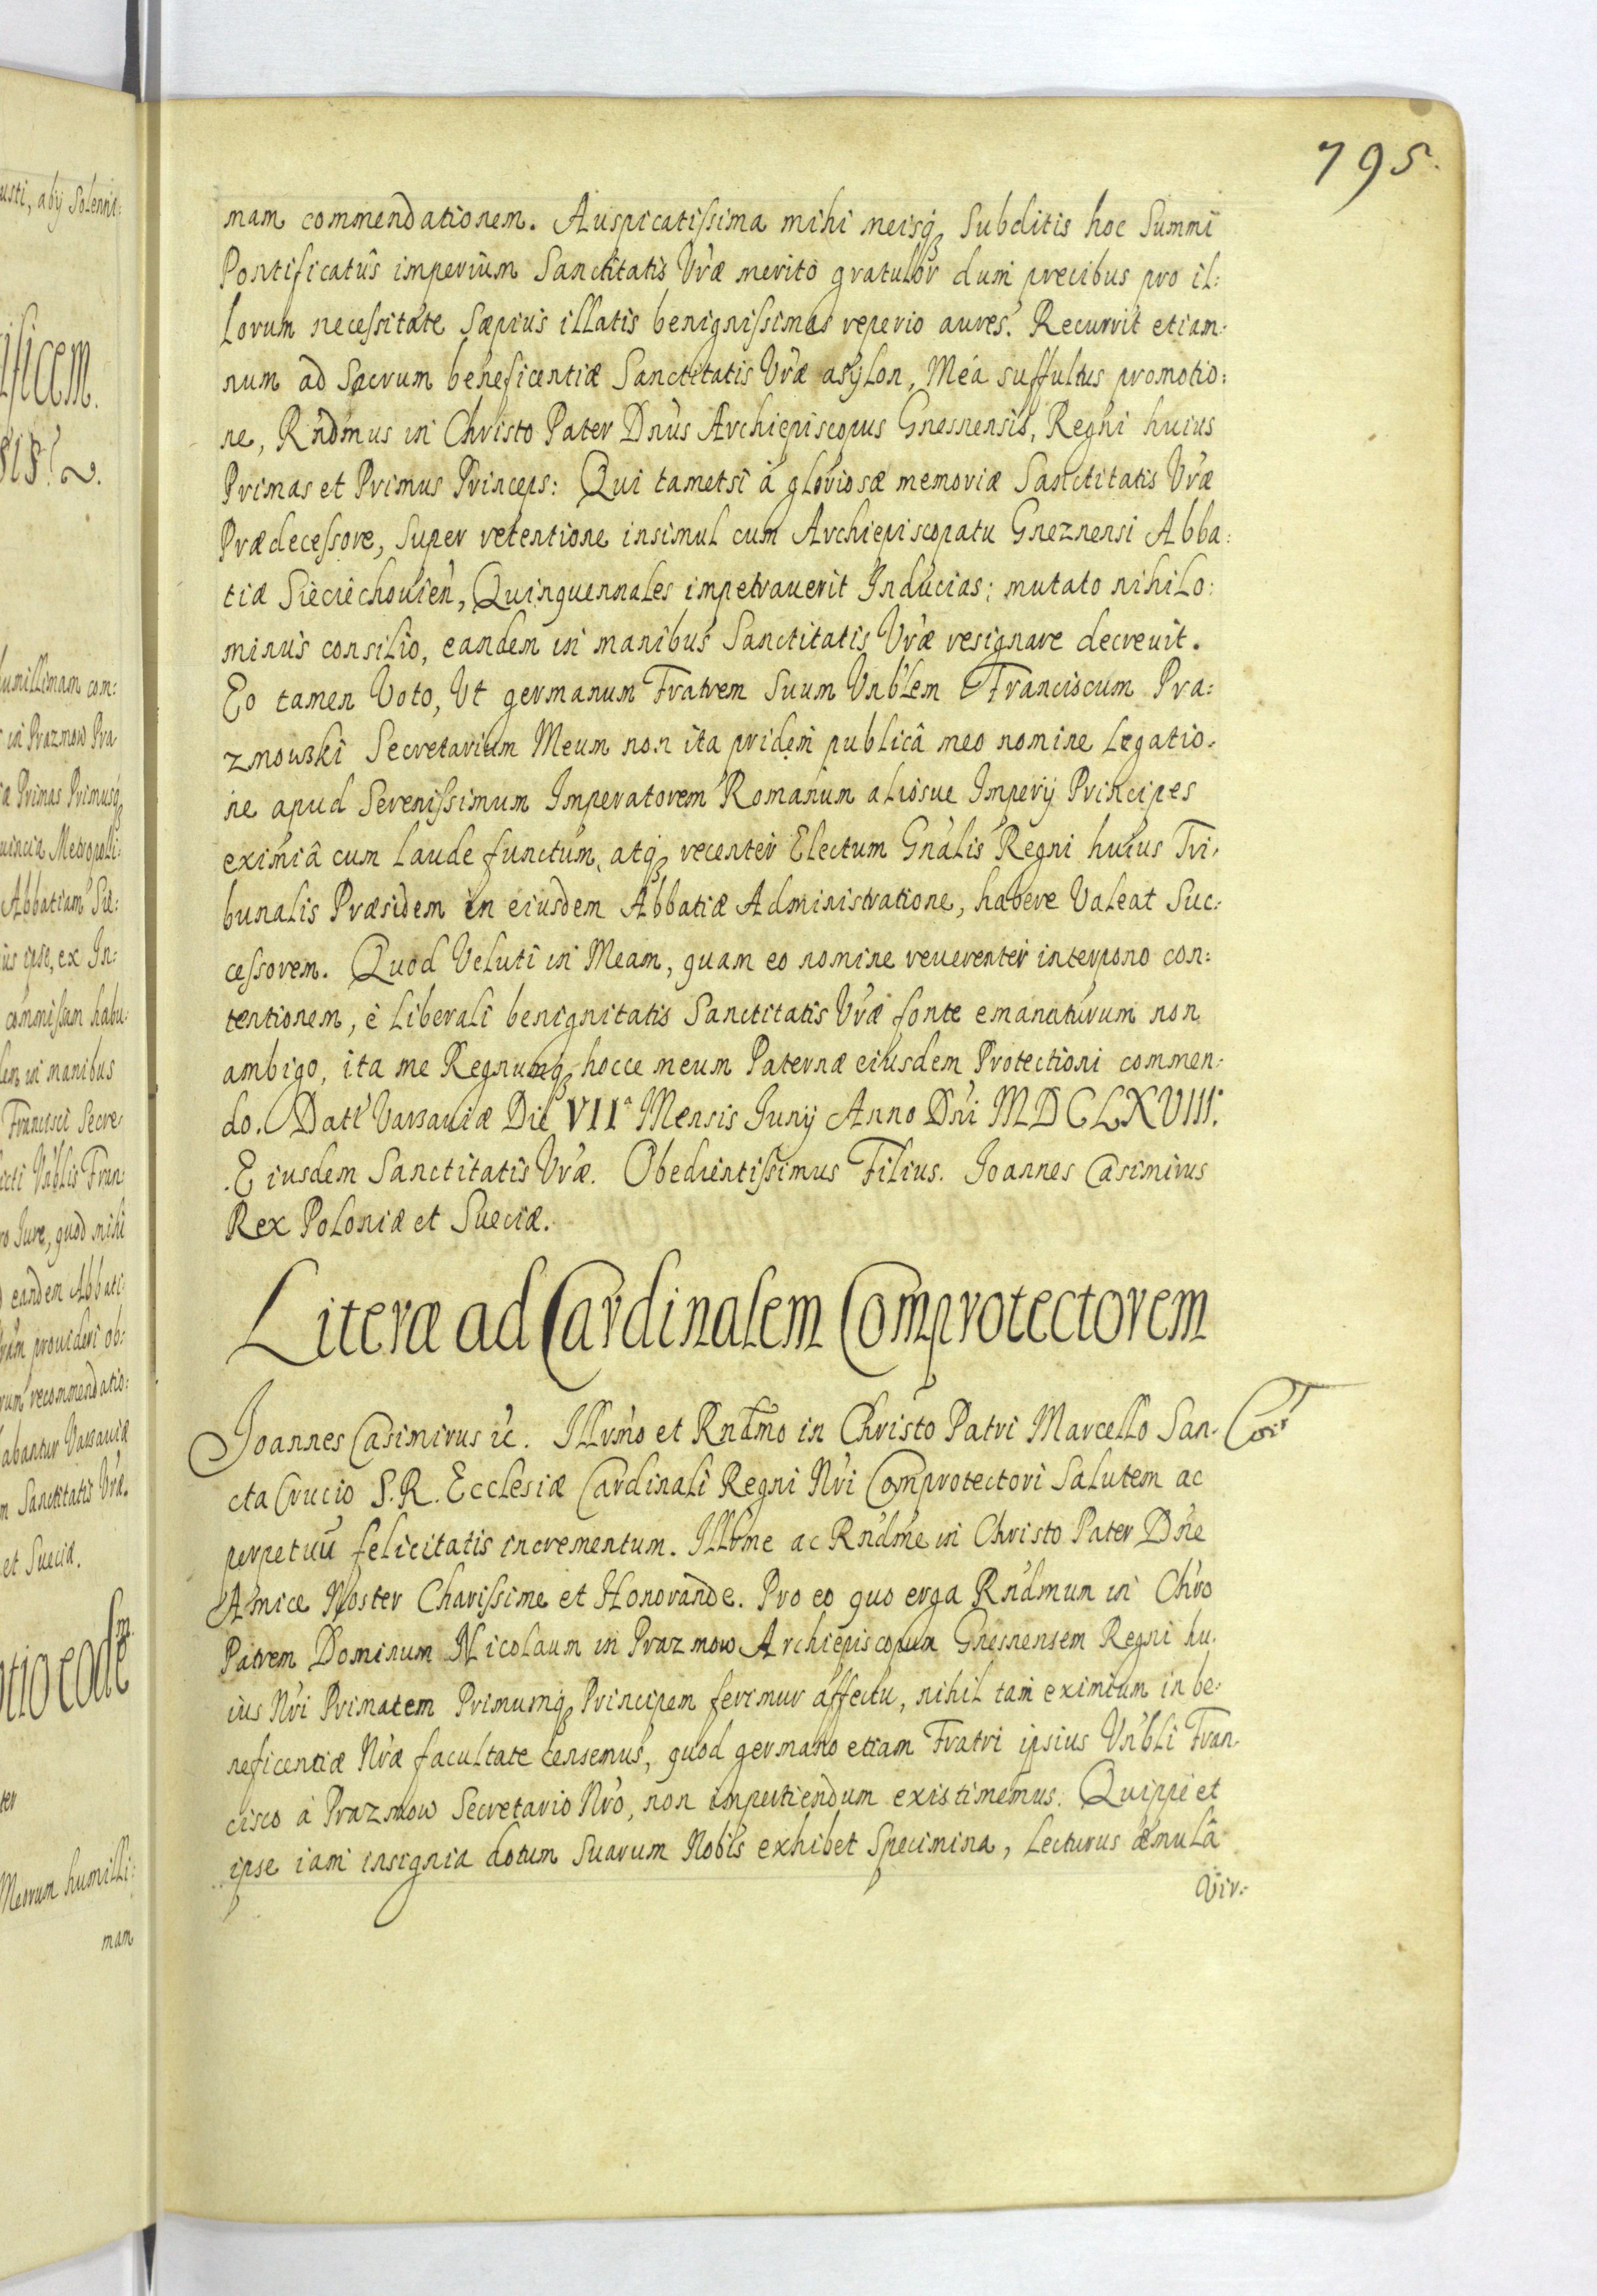 795.
mam commendationem. Auspicatissima mihi meisq; Subditis hoc Summi
Pontificatûs imperium Sanctitatis Vræ meritò gratulor dum precibus pro il:
lorum necessitate Sæpius illatis benignissimas reperio aures. Recurrit etiam:
num ad Sacrum beneficentiæ Sanctitatis Vræ asylon, Meâ suffultus promotio:
ne, Rndmus in Christo Pater Dnus Archiepiscopus Gnesnensis, Regni huius
Primas et Primus Princeps: Qui tametsi à gloriosæ memoriæ Sanctitatis Vræ
Prædecessore, Super retentione insimul cum Archiepiscopatu Gneznensi Abba:
tiæ Sieciechouien, Quinquennales impetrauerit Inducias; mutato nihilo:
minus consilio, eandem in manibus Sanctitatis Vræ resignare decreuit.
Eo tamen Voto, Vt germanum Fratrem Suum Vnblem Franciscum Pra:
zmowski Secretarium Meum non ita pridem publicâ meo nomine legatio:
ne apud Serenissimum Imperatorem Romanum aliosue Imperij Principes
eximiâ cum laude functum, atq; recenter Electum Gnalis Regni huius Tri:
bunalis Præsidem in eiusdem Abbatiæ Administratione, habere Valeat Suc:
cessorem. Quod Veluti in Meam, quam eo nomine reuerenter interpono con:
tentionem, è liberali benignitatis Sanctitatis Vræ fonte emanaturum non
ambigo, ita me Regnumq; hocce meum Paternæ eiusdem Protectioni commen:
do. Datt Varsauiæ Die VIIa Mensis Junij Anno Dni MDCLXVIII.
Eiusdem Sanctitatis Vræ. Obedientissimus Filius. Joannes Casimirus
Rex Poloniæ et Sueciæ.
Literæ ad Cardinalem Comprotectorem
Joannes Casimirus &c. Illrmo et Rndmo in Christo Patri Marcello San:
cta Crucio S. R. Ecclesiæ Cardinali Regni Nri Comprotectori Salutem ac
perpetuū felicitatis incrementum. Illrme ac Rndme in Christo Pater Dne
Amice Noster Charissime et Honorande. Pro eo quo erga Rndmum in Chro
Patrem Dominum Nicolaum in Prazmow Archiepiscopum Gnesnensem Regni hu:
ius Nri Primatem Primumq; Principem ferimur affectu, nihil tam eximium in be:
neficentiæ Nræ facultate censemus, quod germano etiam Fratri ipsius Vnbli Fran:
cisco à Prazmow Secretario Nro, non impertiendum existimemus. Quippe et
ipse iam insignia dotum Suarum Nobis exhibet Specimina, lecturus æmulâ
Vir: